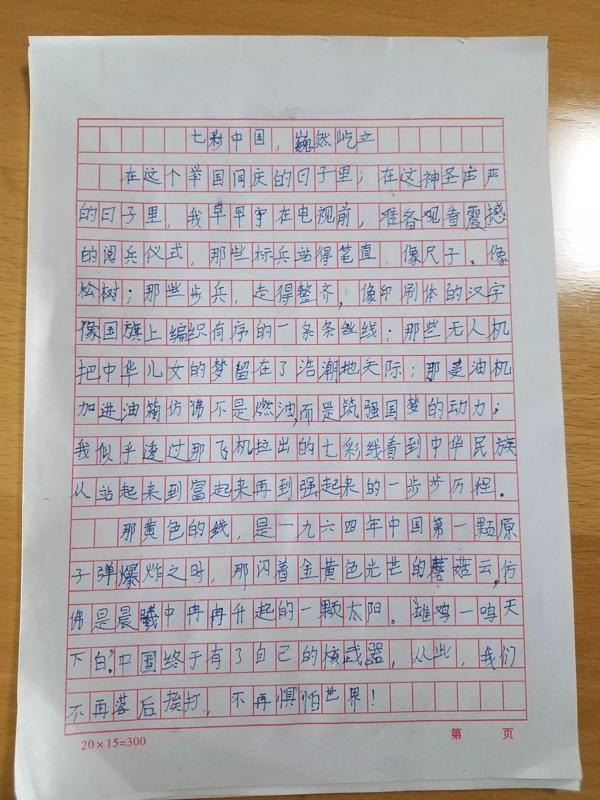 七彩中国，巍然屹立
在这个举国同庆的日子里；在这神圣庄严
的日子里，我早早守在电视前，准备观看震撼
的阅兵仪式，那些标兵站得笔直，像尺子、像
松树；那些步兵，走得整齐，像印刷体的汉字
像国旗上编织有序的一条条丝线；那些无人机
把中华儿女的梦留在了浩潮地天际；那受油机
加进油箱仿佛不是燃油，而是筑强国梦的动力；
我似乎透过那飞机拉出的七彩线看到中华民族
从站起来到富起来再到强起来的一步步历程。
那黄色的线，是一九六四年中国第一颗原
子弹爆炸之时，那闪着金黄色光芒的蘑菇云，仿
佛是晨曦中冉冉升起的一颗太阳。雄鸡一鸣天
下白。"中国终于有了自己的核武器，从此，我们
不再落后挨打，不再惧怕世界！
20×15=300
第 页